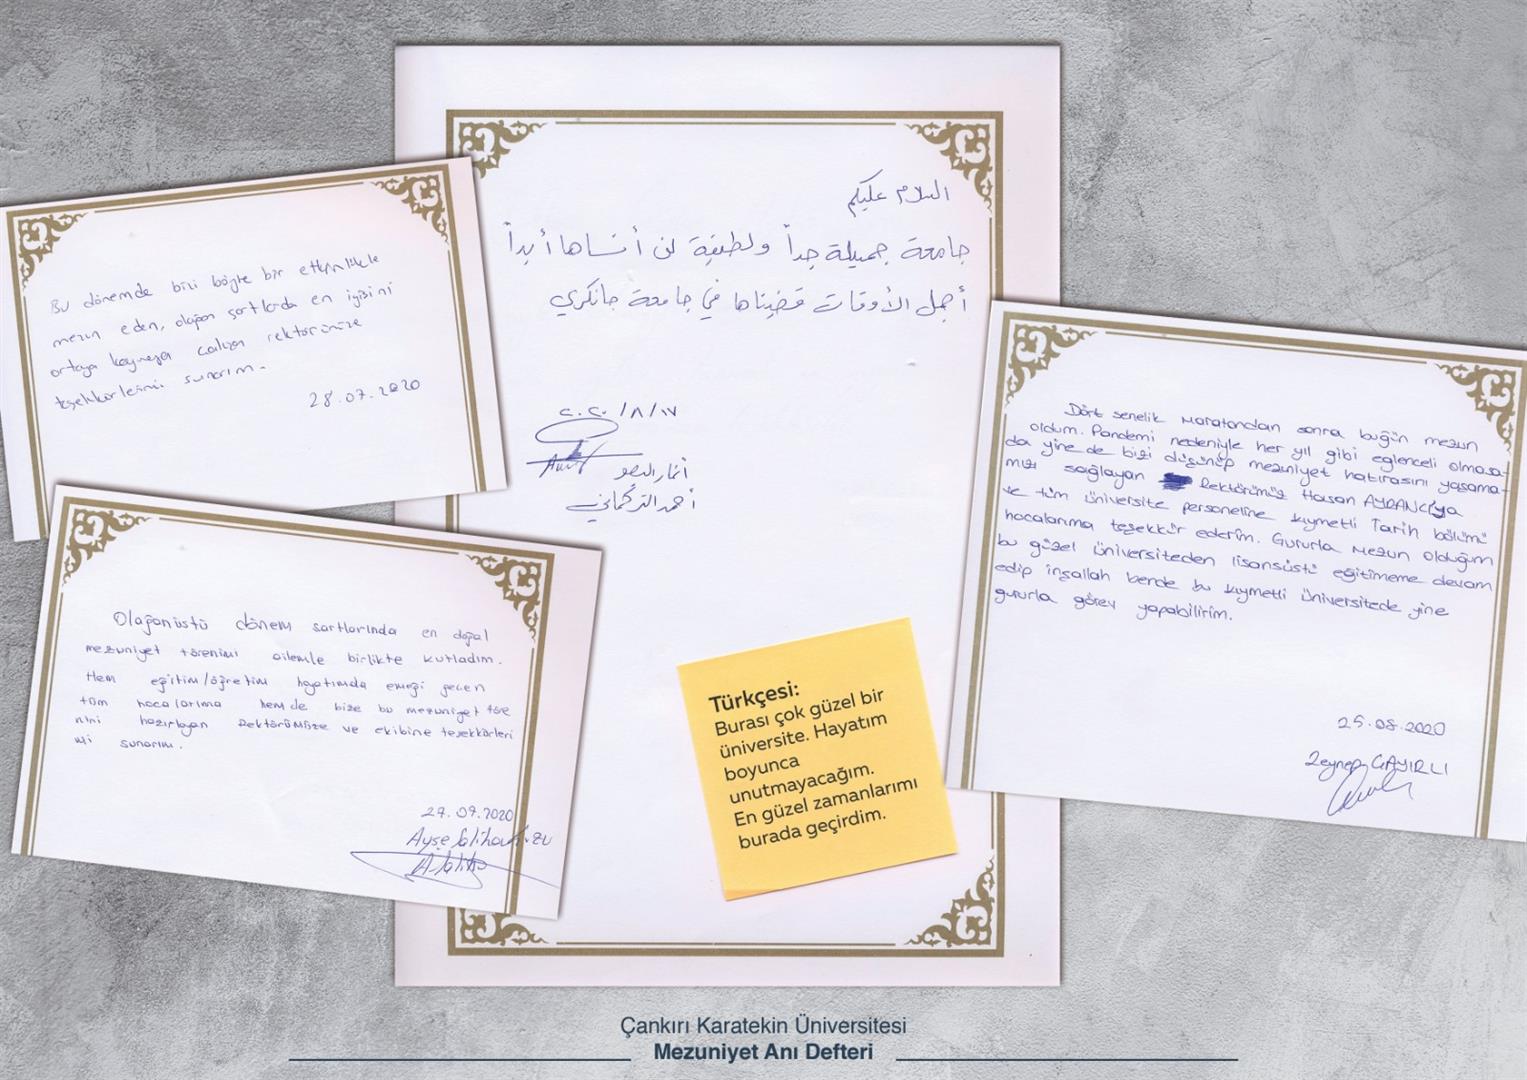 Bu dönemde bizi böyle bir etkinlikle
mezun eden, olağan şartlarda en iyisini
ortaya koymaya çalışan rektörümüze
teşekkürlerimi sunarım.
28.07.2020
Olağanüstü dönem şartlarında en doğal
mezuniyet törenimi ailemle birlikte kutladım.
Hem eğitim/öğretim hayatımda emeği geçen
tüm hocalarıma hem de bize bu mezuniyet töre
nini hazırlayan Rektörümüze ve ekibine teşekkürleri
mi sunarım.
27.07.2020
Ayşe
السلام عليكم
جامعة جميلة جداً ولطيفة لن أنساها أبداً
أجمل الأوقات قضيناها في جامعة جانكري
٢٠٢٠/٨/١٧
أحمد التركماني
Türkçesi:
Burası çok güzel bir
üniversite. Hayatım
boyunca
unutmayacağım.
En güzel zamanlarımı
burada geçirdim.
Dört senelik maratondan sonra bugün mezun
oldum. Pandemi nedeniyle her yıl gibi eğlenceli olmasa-
da yine de bizi düşünüp mezuniyet hatırasını yaşama-
mızı sağlayan Rektörümüz Hasan AYRANCI'ya
ve tüm üniversite personeline kıymetli Tarih bölümü
hocalarıma teşekkür ederim. Gururla mezun olduğum
bu güzel üniversiteden lisansüstü eğitimeme devam
edip inşallah bende bu kıymetli üniversitede yine
gururla görev yapabilirim.
25.08.2020
Zeynep ÇAYIRLI
Çankırı Karatekin Üniversitesi
Mezuniyet Anı Defteri